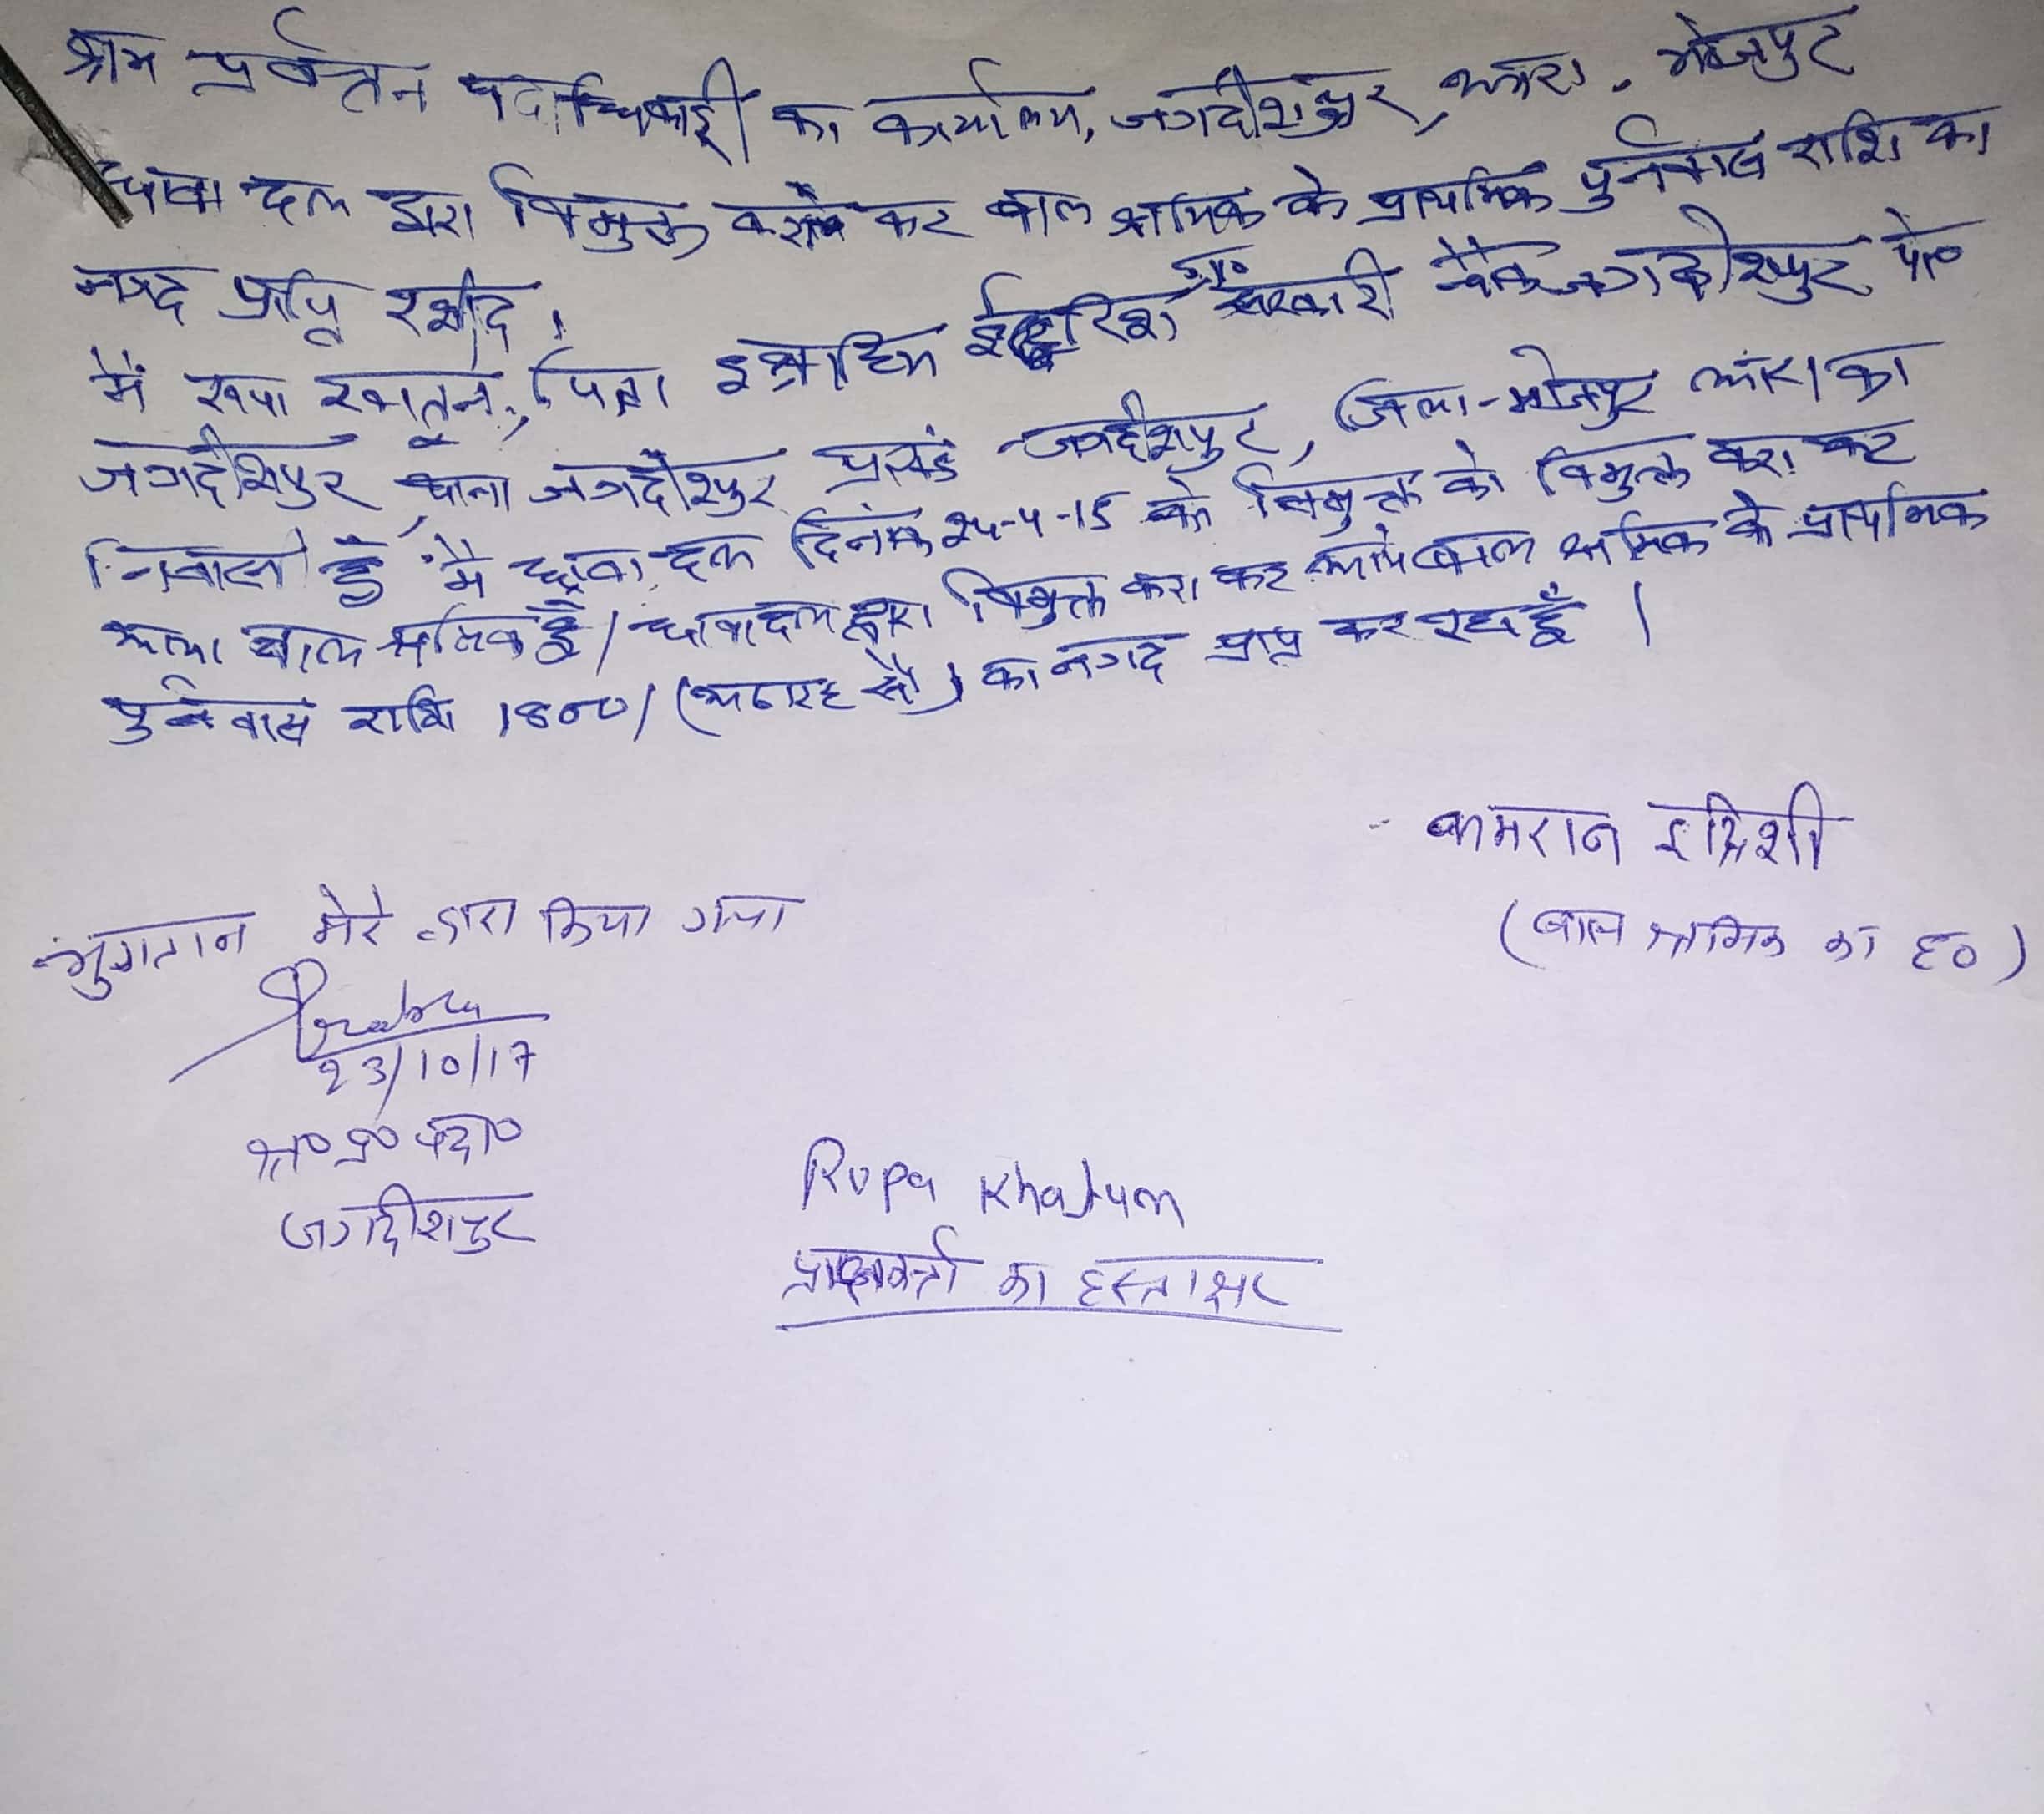 श्रम प्रर्वत्तन पदाधिकारी का कार्यालय, जगदीशपुर, आरा. भोजपुर
धावा दल द्वारा विमुक्त करा कर बाल श्रमिक के प्राथमिक पुर्नवास राशि का
नगद प्राप्ति रसीद।
मैं रूपा खातून, पिता इब्राहिम ईद्रिश ग्रा० सरकारी बैंक जगदीशपुर पो०
जगदीशपुर, थाना जगदीशपुर प्रखंड जगदीशपुर, जिला-भोजपुर आरा का
निवासी हूँ मैं धावा दल दिनांक 24-4-15 को विमुक्त को विमुक्त करा कर
बाल श्रमिक हूँ / धावा दल द्वारा विमुक्त करा कर बाल श्रमिक के प्राथमिक
पुर्नवास राशि 1800/ (अठारह सौ) का नगद प्राप्त कर रहा हूँ |
- कामरान इद्रिशी
(बाल श्रमिक का ह०)
भुगतान मेरे द्वारा किया गया
23/10/17
श्र० प्र० पदा०
जगदीशपुर
Rupa Khatun
प्राप्तकर्ता का हस्ताक्षर